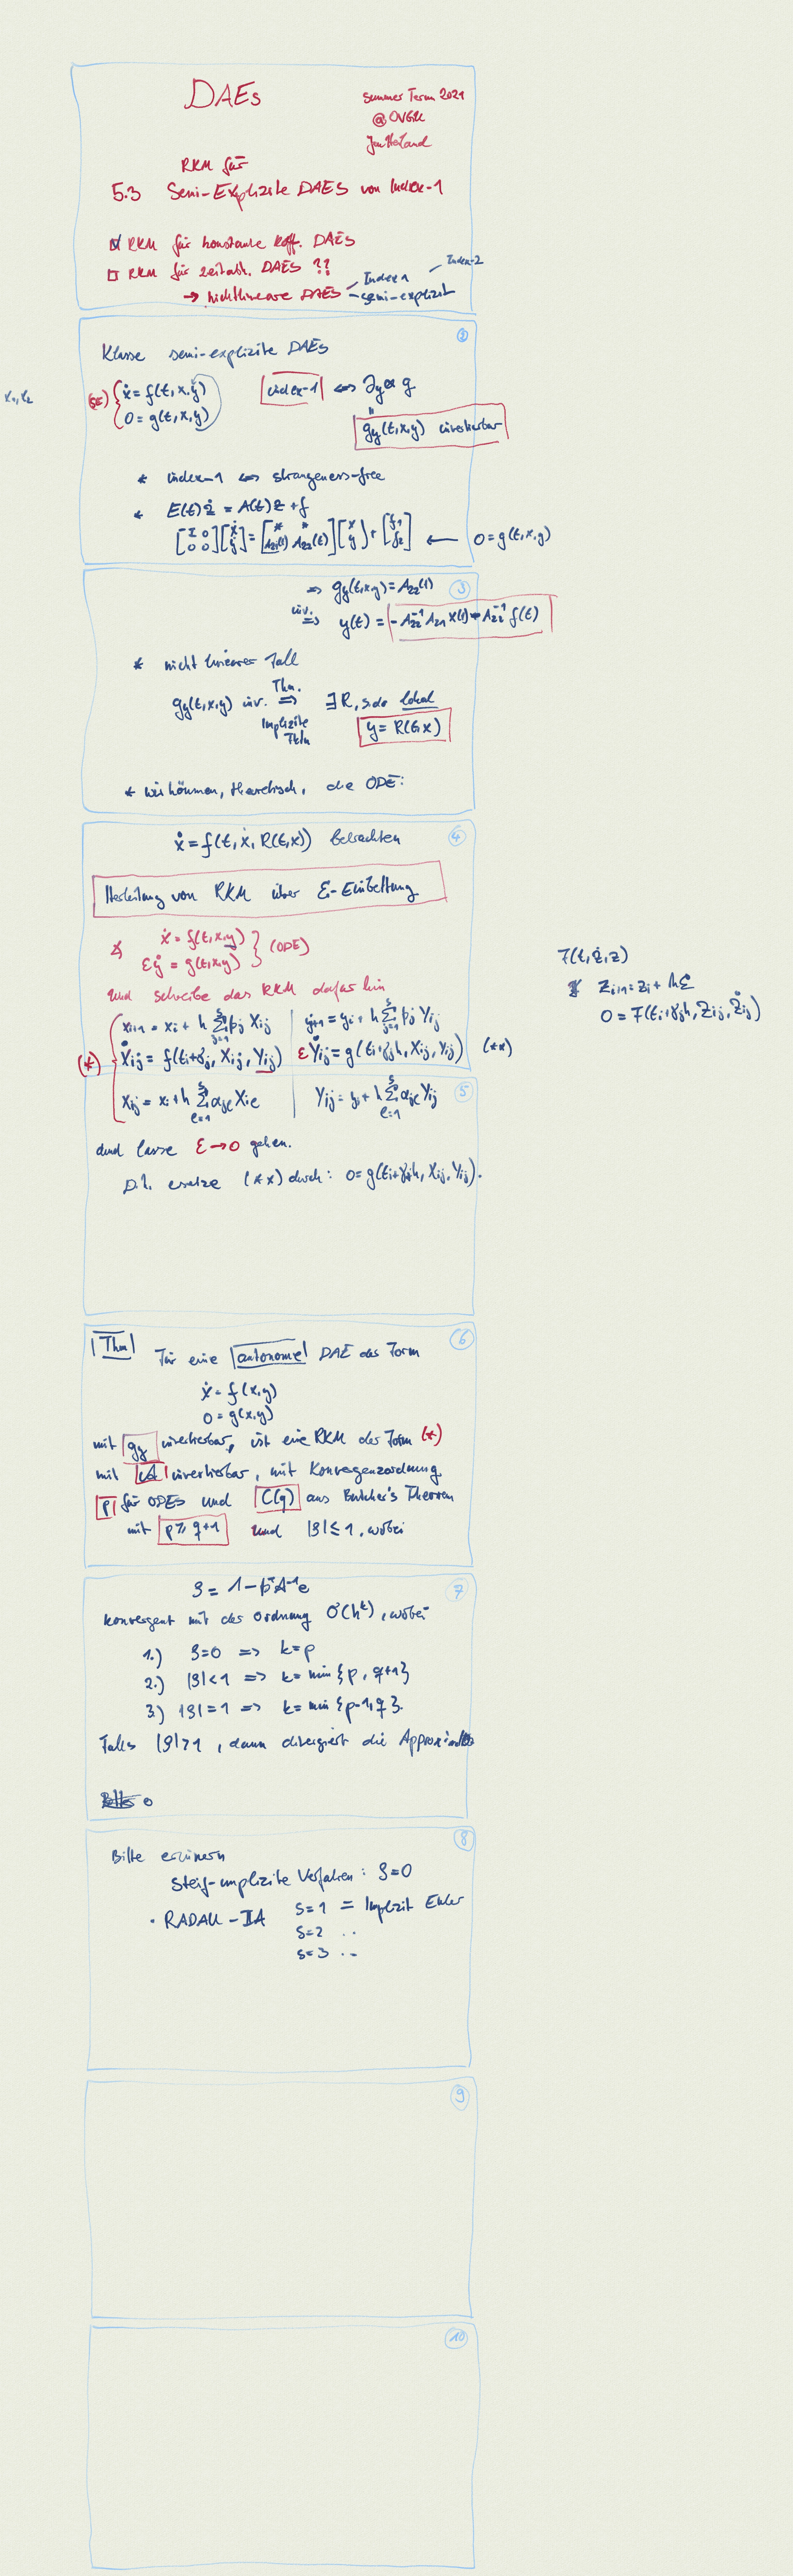 DAEs
Summer Term 2021
@OVGU
Jan Heiland
RKM für
5.3 Semi-Explizite DAEs von Index-1
☑ RKM für konstante Koff. DAEs
☐ RKM für zeitabh. DAEs ??
→ nichtlineare DAEs
Index 1
semi-explizit
Index-2
②
Klasse semi-explizite DAEs
x₁, x₂
(SE) { ẋ = f(t, x, y)
0 = g(t, x, y)
index-1 ⇔ ∂y g
g_y(t,x,y) invertierbar
* index-1 ⇔ strangeness-free
* E(t)ż = A(t)z + f
[I 0; 0 0] [ẋ; ẏ] = [* *; A₂₁(t) A₂₂(t)] [x; y] + [f₁; f₂] ← 0 = g(t,x,y)
③
⇒ g_y(t,x,y) = A₂₂(t)
inv. ⇒ y(t) = -A₂₂⁻¹ A₂₁ x(t) - A₂₂⁻¹ f(t)
* nicht linearer Fall
g_y(t,x,y) inv. Thm. ⇒ ∃ R, s.d. lokal
Implizite Fktn
y = R(t,x)
* wir können, theoretisch, die ODE:
④
ẋ = f(t, x, R(t,x)) betrachten
Herleitung von RKM über ε-Einbettung
ẋ = f(t,x,y)
εẏ = g(t,x,y) } (ODE)
und schreibe das RKM dafür hin
(*) { x_{i+1} = x_i + h Σ_{j=1}^s β_j Ẋ_ij | y_{i+1} = y_i + h Σ_{j=1}^s β_j Y_ij
Ẋ_ij = f(t_i+γ_j, X_ij, Y_ij) | εẎ_ij = g(t_i+γ_j h, X_ij, Y_ij) (**)
⑤
X_ij = x_i + h Σ_{l=1}^s α_jl X_il | Y_ij = y_i + h Σ_{l=1}^s α_jl Y_ij
F(t,ż,z)
z_{i+1} = z_i + h Σ
0 = F(t_i+γ_j h, Z_ij, Ż_ij)
und lasse ε → 0 gehen.
D.h. ersetze (**) durch: 0 = g(t_i+γ_j h, X_ij, Y_ij).
⑥
Thm Für eine autonome DAE der Form
ẋ = f(x,y)
0 = g(x,y)
mit g_y invertierbar, ist eine RKM der Form (*)
mit A invertierbar, mit Konvergenzordnung
p für ODEs und C(q) aus Butcher's Theorem
mit p ≥ q+1 und |ρ| ≤ 1, wobei
⑦
ρ = 1 - βᵀA⁻¹e
konvergent mit der Ordnung O(hᵏ), wobei
1.) ρ=0 ⇒ k=p
2.) |ρ|<1 ⇒ k = min{p, q+1}
3.) |ρ|=1 ⇒ k = min{p-1, q}.
Falls |ρ|>1, dann divergiert die Approximation
⑧
Bitte erinnern
Steif-implizite Verfahren: ρ=0
• RADAU-IIA s=1 = Implizit Euler
s=2 ..
s=3 ..
⑨
⑩